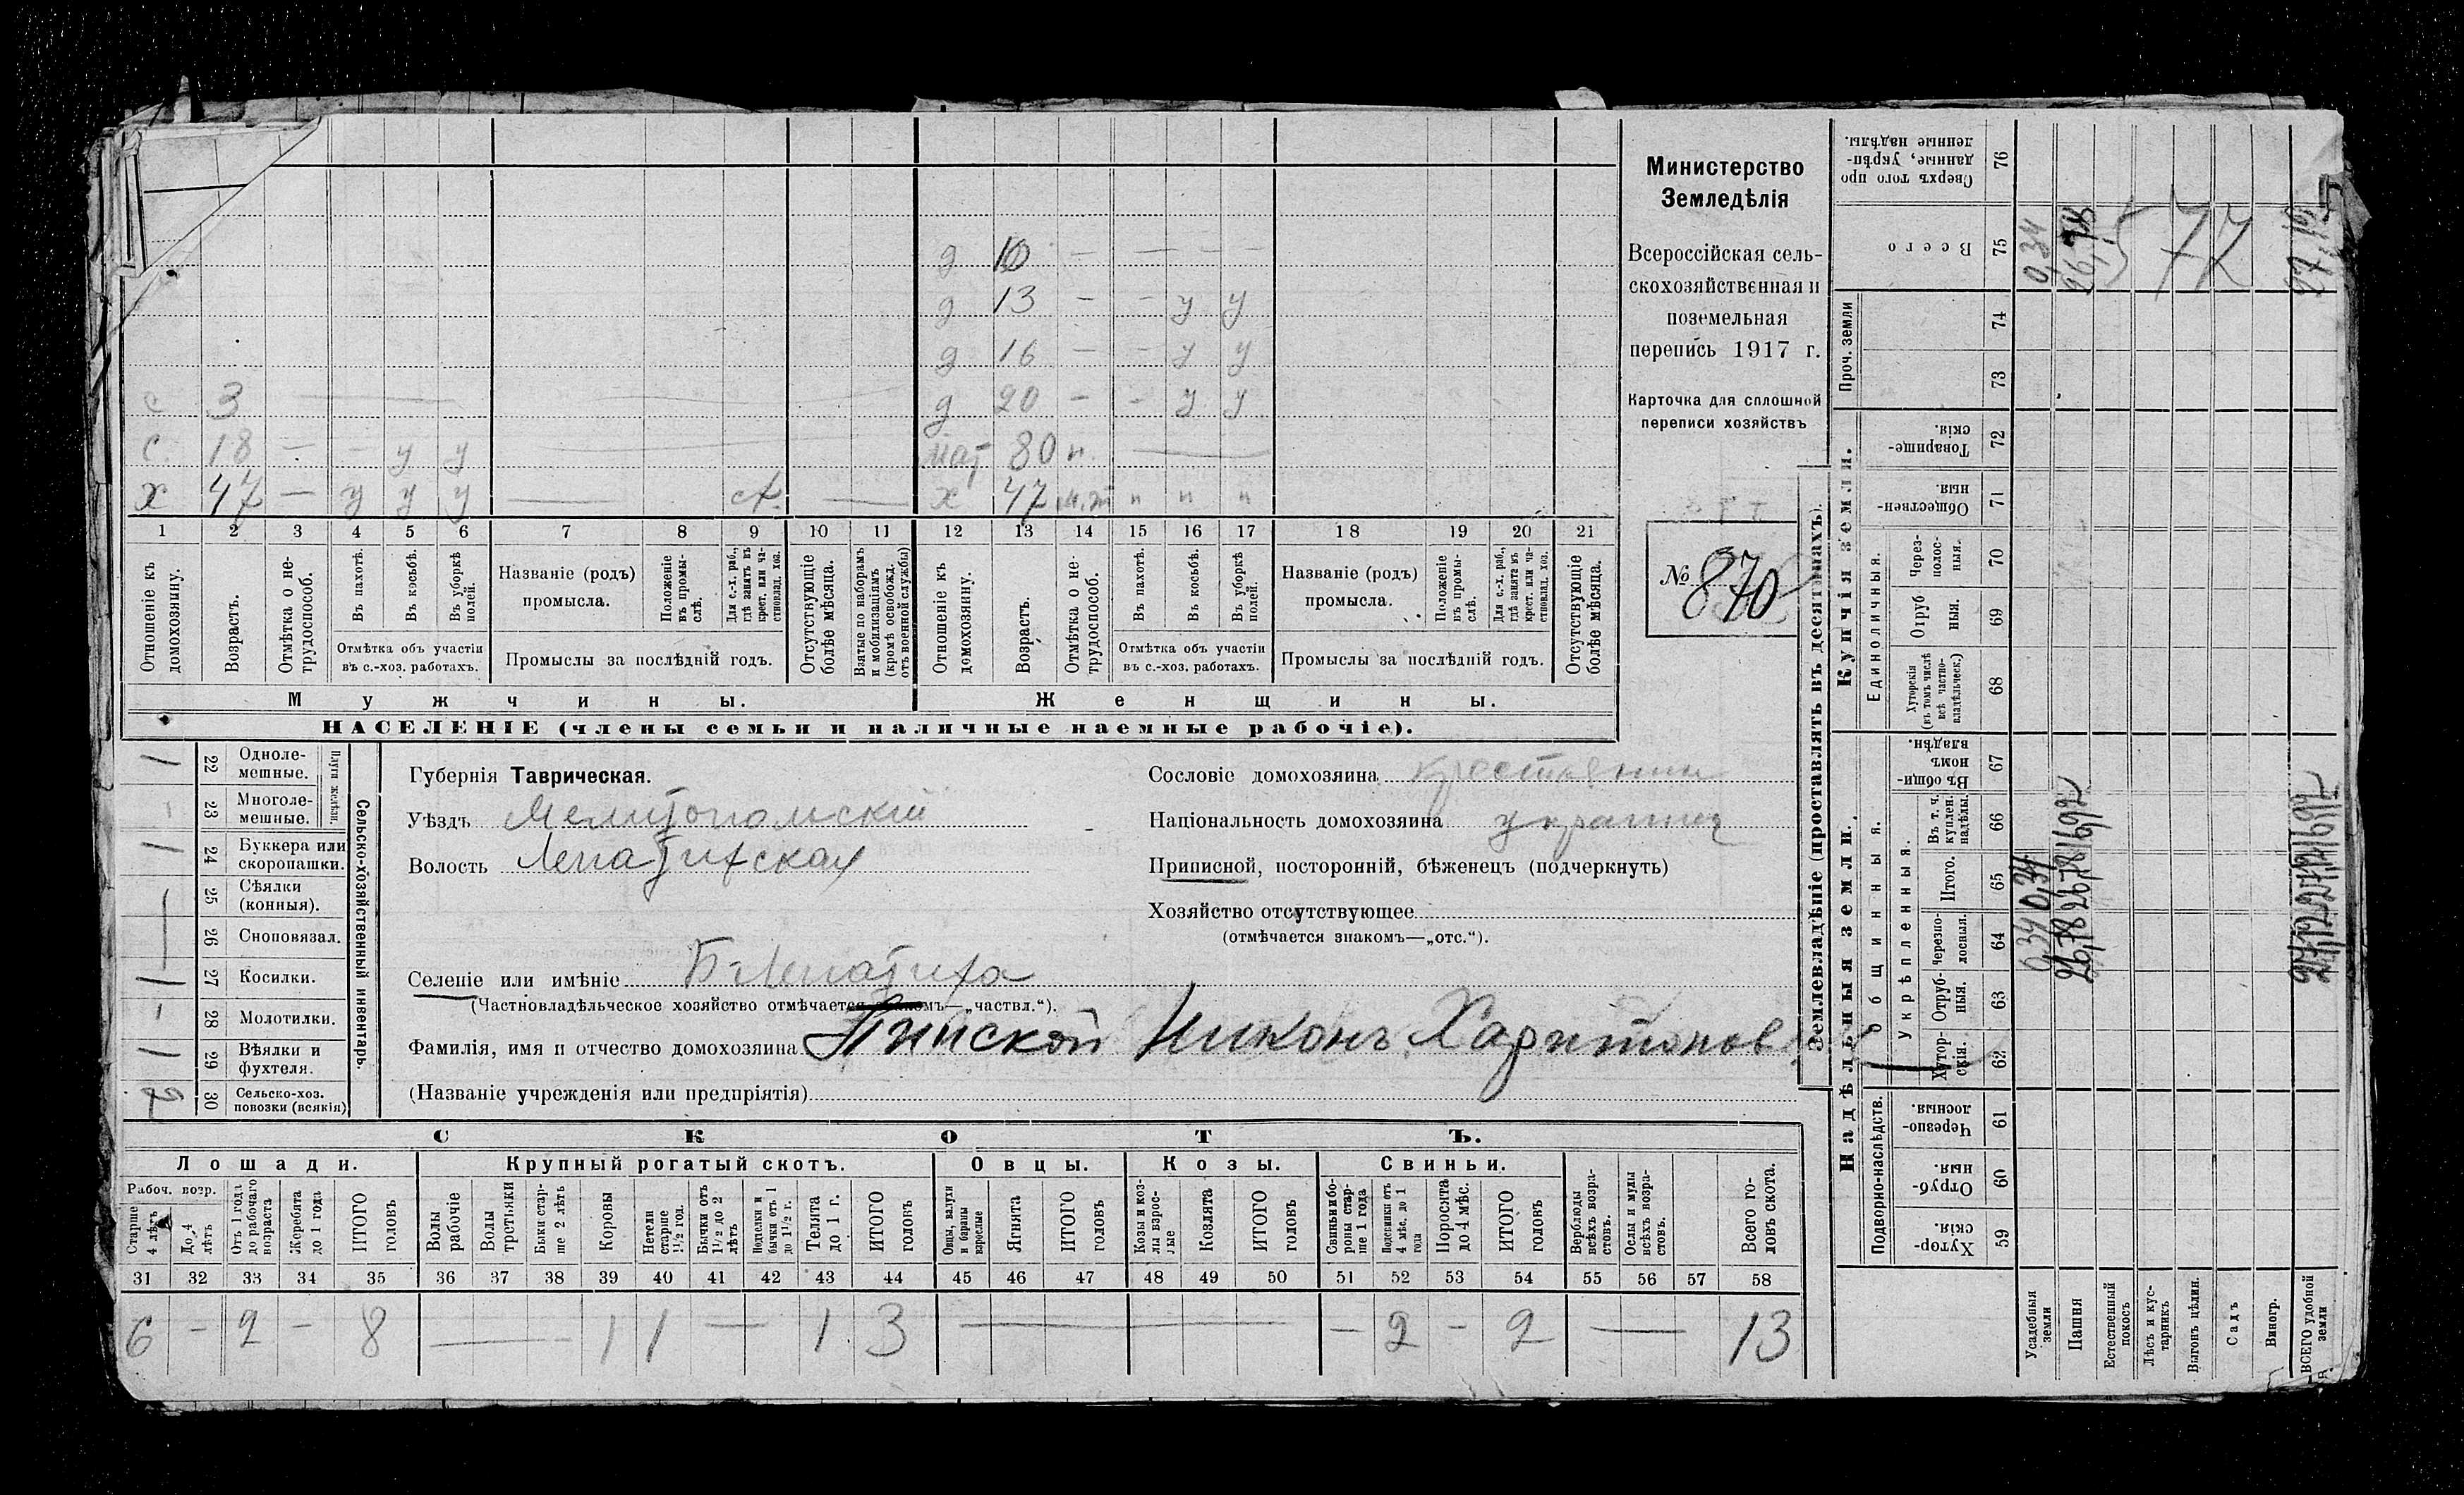 д 10 — — — —
д 13 - - у у
д 16 - - у у
с 3 д 20 - - у у
с. 18 — - у у мат 80 н.
х 47 — у у у х 47 н н н
1 2 3 4 5 6 7 8 9 10 11 12 13 14 15 16 17 18 19 20 21
Отношеніе къ домохозяину.
Возрастъ.
Отмѣтка о нетрудоспособ.
Въ пахотѣ.
Въ косьбѣ.
Въ уборкѣ полей.
Отмѣтка объ участіи
въ с.-хоз. работахъ.
Названіе (родъ)
промысла.
Положеніе въ промыслѣ.
Для с.-х. раб., гдѣ занятъ въ крест. или частновлад. хоз.
Промыслы за послѣдній годъ.
Отсутствующіе болѣе мѣсяца.
Взятые по наборамъ и мобилизаціямъ (кромѣ освобожд. отъ военной службы)
Отношеніе къ домохозяину.
Возрастъ.
Отмѣтка о нетрудоспособ.
Въ пахотѣ.
Въ косьбѣ.
Въ уборкѣ полей.
Отмѣтка объ участіи
въ с.-хоз. работахъ.
Названіе (родъ)
промысла.
Положеніе въ промыслѣ.
Для с.-х. раб., гдѣ занята въ крест. или частновлад. хоз.
Промыслы за послѣдній годъ.
Отсутствующіе болѣе мѣсяца.
Мужчины. Женщины.
НАСЕЛЕНІЕ (члены семьи и наличные наемные рабочіе).
Министерство
Земледѣлія
Всероссійская сель-
скохозяйственная и
поземельная
перепись 1917 г.
Карточка для сплошной
переписи хозяйствъ
№ 870
Сельско-хозяйственный инвентарь.
Плуги желѣзн.
1 22 Одноле-
мешные.
- 23 Многоле-
мешные.
1 24 Буккера или
скоропашки.
25 Сѣялки
(конныя).
26 Сноповязал.
1 27 Косилки.
- 28 Молотилки.
1 29 Вѣялки и
фухтеля.
2 30 Сельско-хоз.
повозки (всякія)
Губернія Таврическая.
Уѣздъ Мелитопольскій
Волость Лепатихская
Селеніе или имѣніе Б-Лепатиха
(Частновладѣльческое хозяйство отмѣчается знакомъ—„частвл.“).
Фамилія, имя и отчество домохозяина Пинской Никонъ Харитонов
(Названіе учрежденія или предпріятія)
Сословіе домохозяина крестьянин
Національность домохозяина украинец
Приписной, посторонній, бѣженецъ (подчеркнуть)
Хозяйство отсутствующее
(отмѣчается знакомъ—„отс.“).
СКОТЪ.
Лошади. Крупный рогатый скотъ. Овцы. Козы. Свиньи.
Рабоч. возр.
Старше 4 лѣтъ
До 4 лѣтъ
Отъ 1 года до рабочаго возраста
Жеребята до 1 года
ИТОГО головъ
Волы рабочіе
Волы третьяки
Быки старше 2 лѣтъ
Коровы
Нетели старше 1 1/2 год.
Бычки отъ 1 1/2 до 2 лѣтъ
Подтелки и бычки отъ 1 до 1 1/2 г.
Телята до 1 г.
ИТОГО головъ
Овцы, валухи и бараны взрослые
Ягнята
ИТОГО головъ
Козы и козлы взрослые
Козлята
ИТОГО головъ
Свиньи и бороны старше 1 года
Подсвинки отъ 4 мѣс. до 1 года
Поросята до 4 мѣс.
ИТОГО головъ
Верблюды всѣхъ возрастовъ.
Ослы и мулы всѣхъ возрастовъ.
Всего головъ скота.
31 32 33 34 35 36 37 38 39 40 41 42 43 44 45 46 47 48 49 50 51 52 53 54 55 56 57 58
6 - 2 - 8 — 1 1 — 1 3 — — 2 - 2 — 13
Землевладѣніе (проставлять въ десятинахъ).
Надѣльныя земли. Купчія земли. Проч. земли
Подворно-наслѣдств.
Общинныя.
Укрѣпленныя.
Единоличныя.
Хуторскія. 59
Отрубныя. 60
Черезполосныя. 61
Хуторскія. 62
Отрубныя. 63
Черезполосныя. 64
Итого. 65
Въ т. ч. куплен. надѣлы. 66
Въ общинномъ владѣн. 67
Хуторскія (въ томъ числѣ всѣ частновладѣльческ.) 68
Отрубныя. 69
Черезполосныя. 70
Общественныя. 71
Товарищескія. 72
73
74
Всего 75
Сверхъ того проданные, укрѣпленные надѣлы. 76
Усадебныя земли 0,34 0,34 0,34
Пашня 26,78 26,78 16,92 26,78
Естественный покосъ
Лѣсъ и кустарникъ
Выгонъ цѣлин.
Садъ
Виногр.
ВСЕГО удобной земли 27,12 27,12 16,92 27,12
77